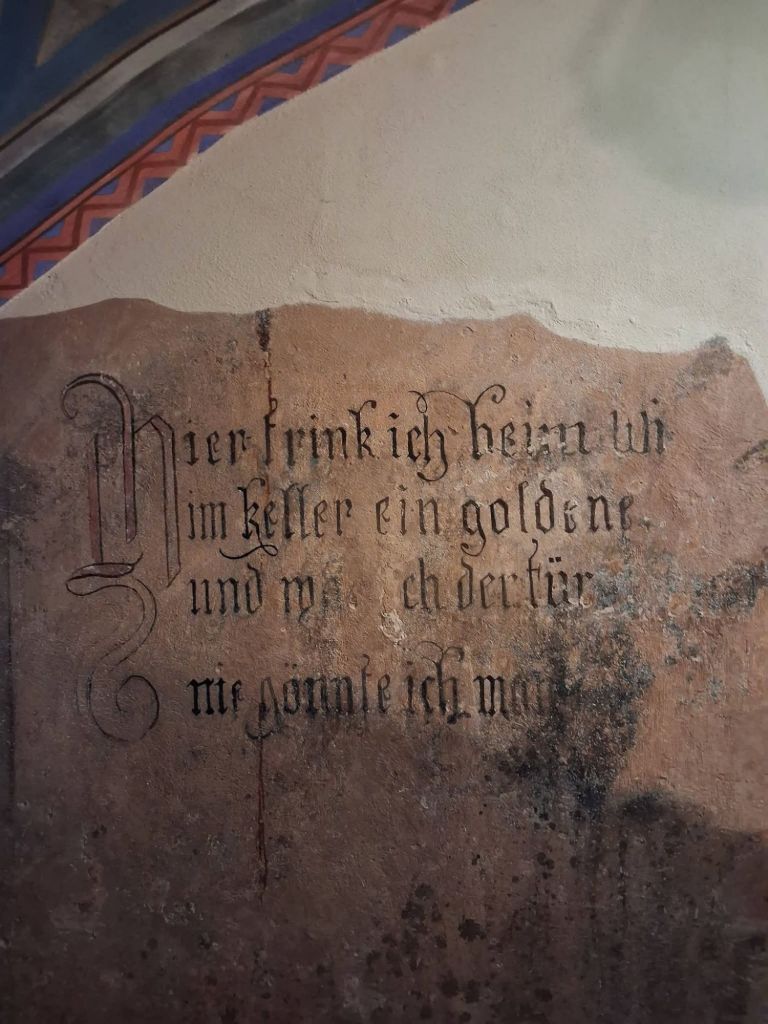 Hier trink ich beim Wi
im keller ein goldene
und w ch der tür
nie gönnte ich man